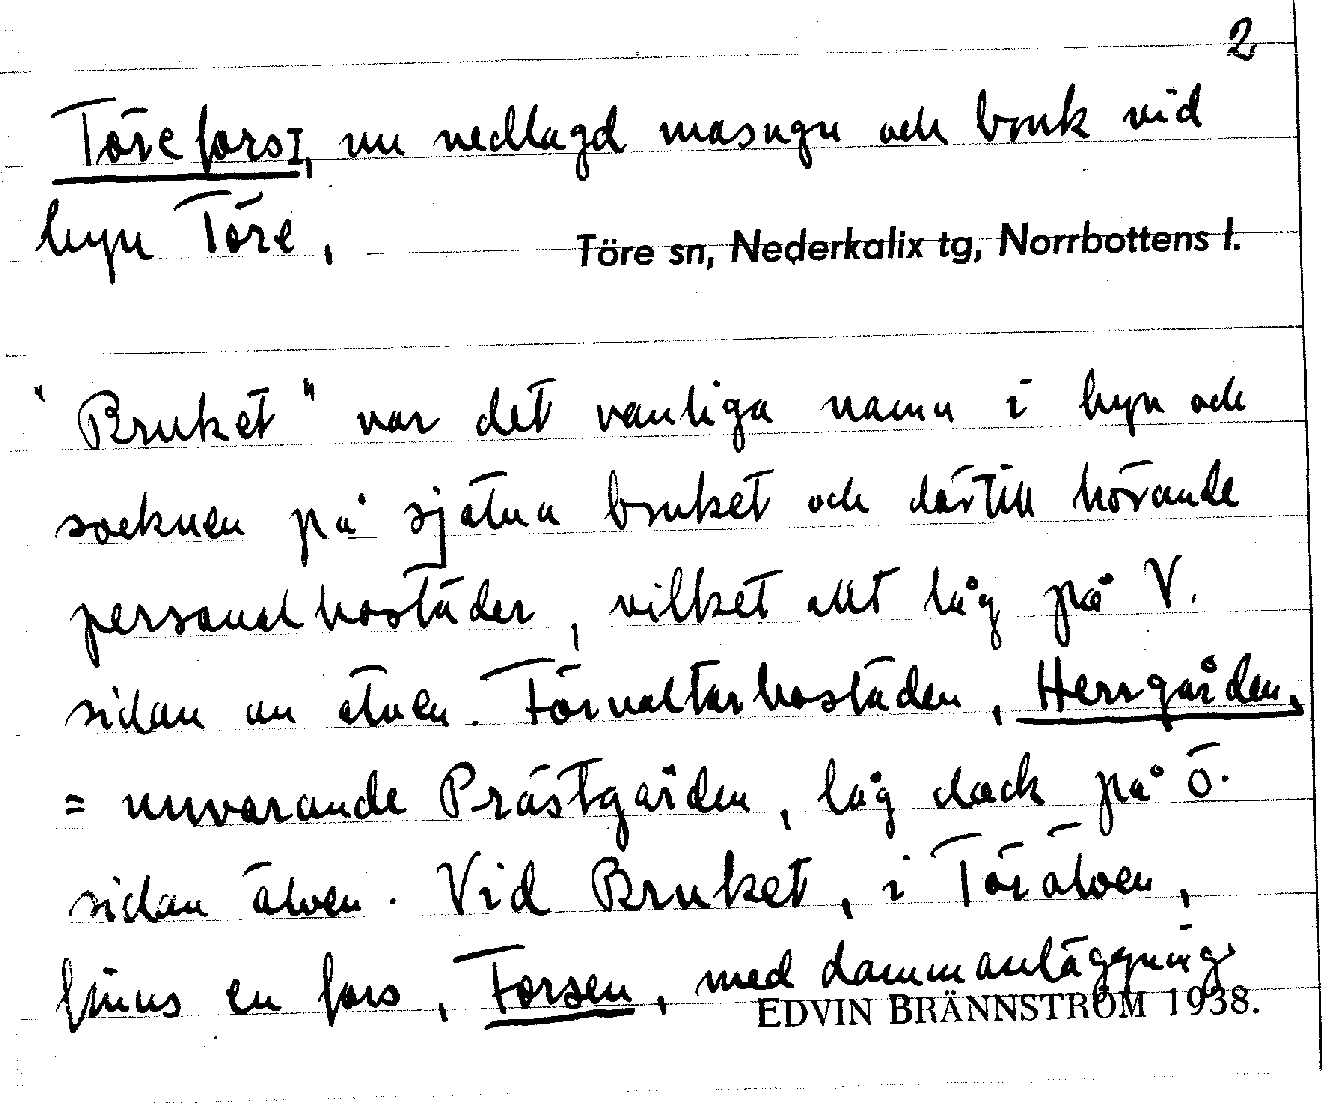 2
Töreforsz, nu nedlagd masugn och bruk vid
byn Töre,
Töre sn, Nederkalix tg, Norrbottens l.
"Bruket" var det vanliga namn i byn och
socknen på själva bruket och därtill hörande
personalbostäder, vilket allt låg på V.
sidan av älven. Förvaltarbostaden, Herrgården,
= nuvarande Prästgården, låg dock på Ö.
sidan älven. Vid Bruket, i Töreälven,
finns en fors, Forsen, med dammanläggning
EDVIN BRÄNNSTRÖM 1938.